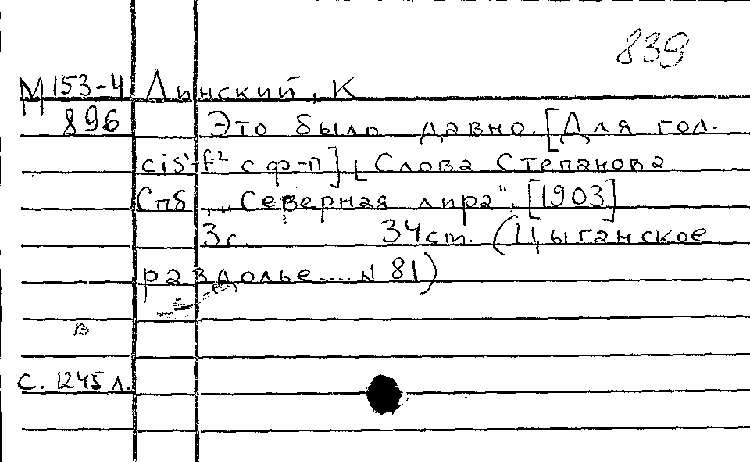 839
М 153-4 Лынский, К
896 Это было давно. [Для гол.
cis¹-f² с ф-п] [Слова Степанова
Спб. „Северная лира", [1903]
3с. 34см. (Цыганское
раздолье.... № 81)
в
с. 1245 л.